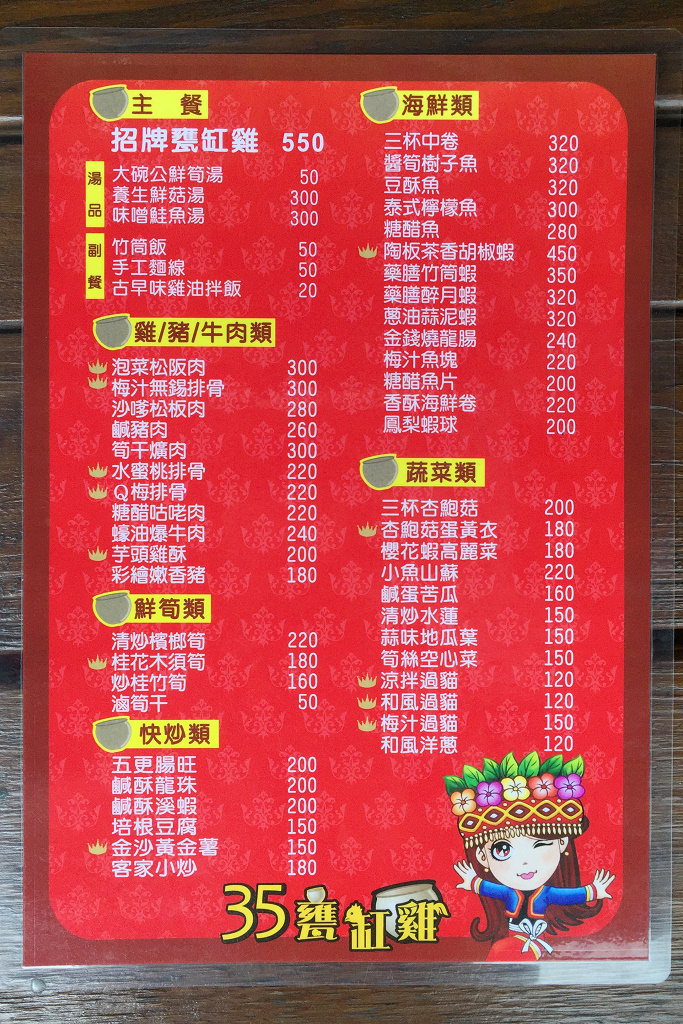 主 餐
招牌甕缸雞 550
湯品
大碗公鮮筍湯 50
養生鮮菇湯 300
味噌鮭魚湯 300
副餐
竹筒飯 50
手工麵線 50
古早味雞油拌飯 20
雞/豬/牛肉類
泡菜松阪肉 300
梅汁無錫排骨 300
沙嗲松板肉 280
鹹豬肉 260
筍干爌肉 300
水蜜桃排骨 220
Q梅排骨 220
糖醋咕咾肉 220
蠔油爆牛肉 240
芋頭雞酥 200
彩繪嫩香豬 180
鮮筍類
清炒檳榔筍 220
桂花木須筍 180
炒桂竹筍 160
滷筍干 50
快炒類
五更腸旺 200
鹹酥龍珠 200
鹹酥溪蝦 200
培根豆腐 150
金沙黃金薯 150
客家小炒 180
海鮮類
三杯中卷 320
醬筍樹子魚 320
豆酥魚 320
泰式檸檬魚 300
糖醋魚 280
陶板茶香胡椒蝦 450
藥膳竹筒蝦 350
藥膳醉月蝦 320
蔥油蒜泥蝦 320
金錢燒龍腸 240
梅汁魚塊 220
糖醋魚片 200
香酥海鮮卷 220
鳳梨蝦球 200
蔬菜類
三杯杏鮑菇 200
杏鮑菇蛋黃衣 180
櫻花蝦高麗菜 180
小魚山蘇 220
鹹蛋苦瓜 160
清炒水蓮 150
蒜味地瓜葉 150
筍絲空心菜 150
涼拌過貓 120
和風過貓 120
梅汁過貓 150
和風洋蔥 120
35甕缸雞